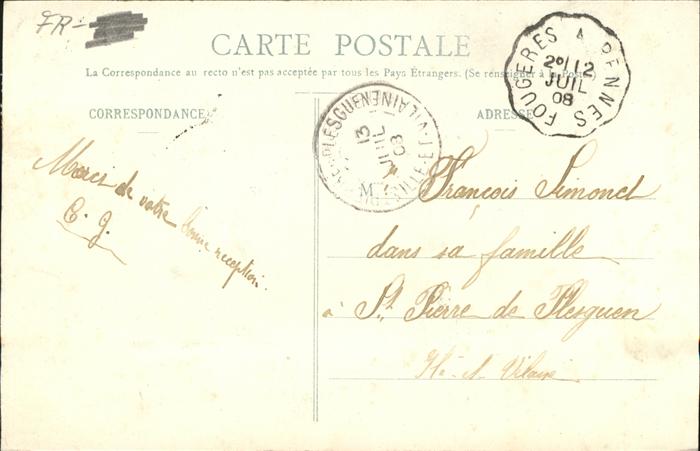 FR-
CARTE POSTALE
La Correspondance au recto n'est pas acceptée par tous les Pays Étrangers. (Se renseigner à la Poste)
CORRESPONDANCE
ADRESSE
FOUGERES A RENNES
2º/12
JUIL
08
PLESGUEN
ILLE-ET-VILAINE
13
JUIL
08
Merci de votre bonne reception.
C. J.
M
François Simonet
dans sa famille
à St Pierre de Plesguen
Ille-et-Vilaine